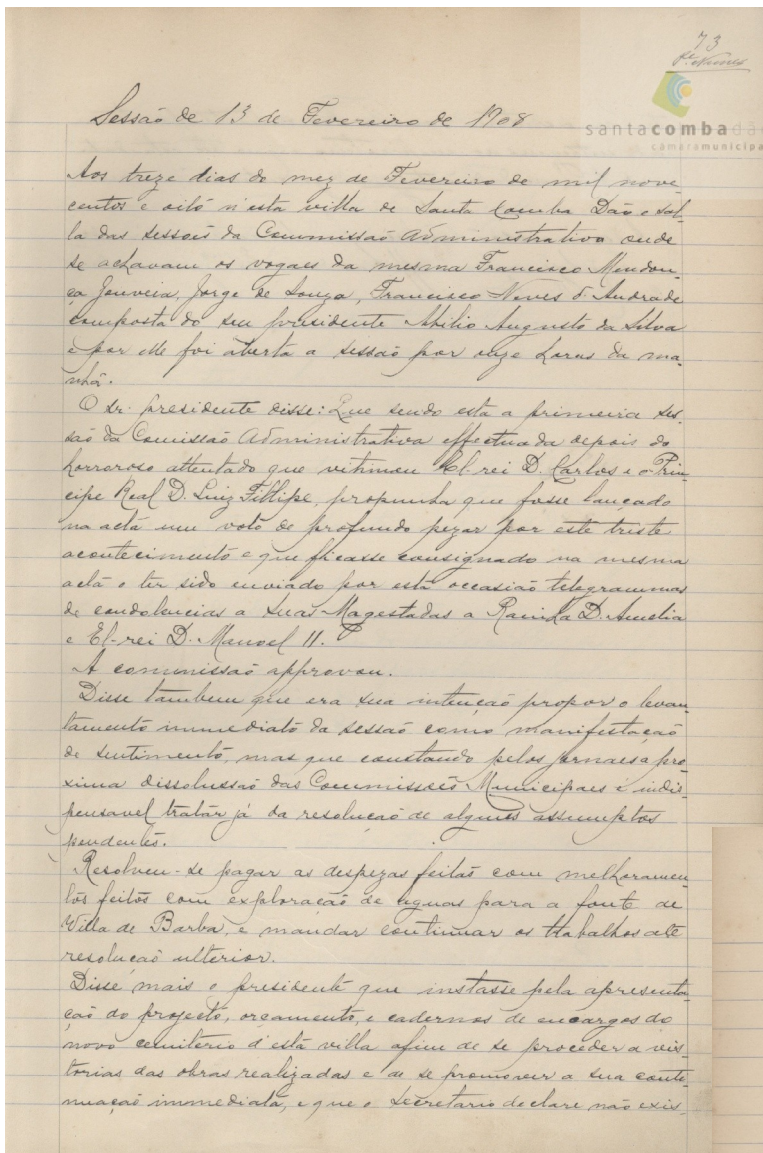 73
Sessão de 13 de Fevereiro de 1908
santacombadão
câmaramunicipa
Aos treze dias do mez de Fevereiro de mil nove
centos e oitó n'esta villa de Santa Comba Dão e sal-
la das sessoẽs da Commissaõ Administrativa onde
se achavam os vogaes da mesma Francisco Mendon-
ça Gouveia, Jorge de Souza, Francisco Neves d'Andrade
composta do seu presidente Abilio Augusto da Silva
e por elle foi aberta a sessaõ por onze horas da ma-
nhã.
O sr. presidente disse: Que sendo esta a primeira ses-
saõ da Comissaõ Administrativa effectuada depois do
horroroso attentado que vitimou El-rei D. Carlos e o Prin-
cipe Real D. Luiz Fillipe, propunha que fosse lançado
na actá um votó de profundo pezar por este triste
acontecimentó e que ficasse consignado na mesma
actá o ter sido enviado por está occasiaõ telegrammas
de condolencias a Suas Magestadas a Rainha D. Amelia
e El-rei D. Manoel II.
A commissaõ approvou.
Disse tambem que era sua intençaõ propor o levan-
tamentó immediató da sessaõ como manifestaçaõ
de sentimentó, mas que constando pelos jornaes a pro-
xima dissolussaõ das Commissoẽs Municipaes é indis-
pensavel tratar já da resoluçaõ de alguns assumptos
pendentes.
Resolveu-se pagar as despezas feitas com melhoramen-
tós feitós com exploraçaõ de aguas para a fonte de
Villa de Barba, e mandar continuar os trabalhos até
resoluçaõ ulterior.
Disse mais o presidente que instasse pela apresenta-
çaõ do projectó, orçamentó, e cadernos de encargos do
novo cemiterio d'está villa afim de se proceder a vis-
torias das obras realizadas e de se promover a sua conti-
nuaçaõ immediatá, e que o secretario declare naõ exis-